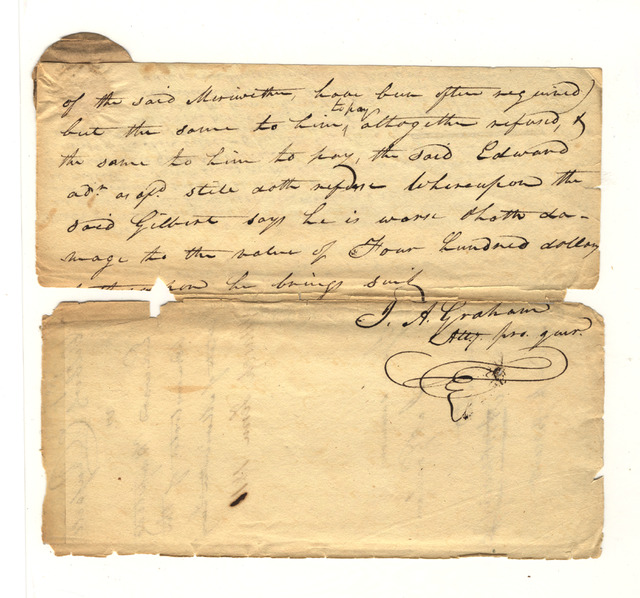 of the said Meriwether, have been often required
but the same to him, to pay altogether refused, &
the same to him to pay, the said Edward
adm. as afd. still doth refuse Whereupon the
said Gilbert says he is worse & hath da-
mage to the value of Four hundred dollars
he brings suit
J. A. Graham
Atty. pro. quer.